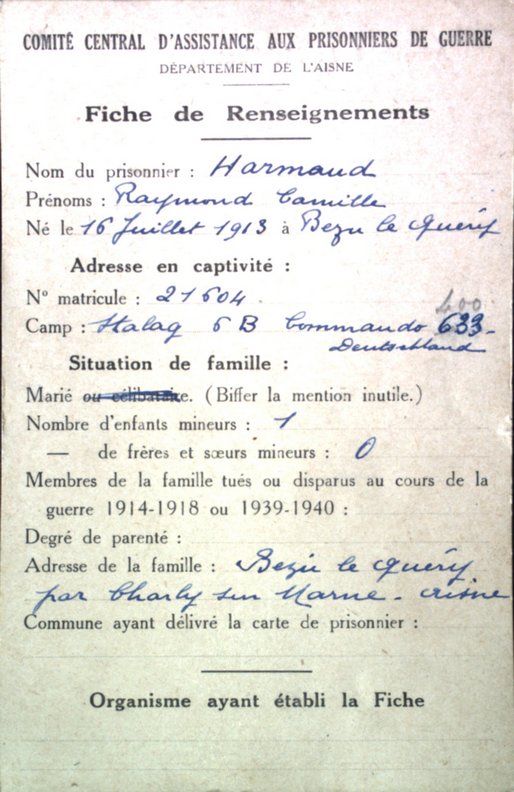 COMITÉ CENTRAL D'ASSISTANCE AUX PRISONNIERS DE GUERRE
DÉPARTEMENT DE L'AISNE
Fiche de Renseignements
Nom du prisonnier : Harmand
Prénoms : Raymond Camille
Né le 16 Juillet 1913 à Bezu le Guéry
Adresse en captivité :
N° matricule : 21604.
400
Camp : Stalag 6 B Commando 633-
Deutschland
Situation de famille :
Marié ou célibataire. (Biffer la mention inutile.)
Nombre d'enfants mineurs : 1
— de frères et sœurs mineurs : 0
Membres de la famille tués ou disparus au cours de la
guerre 1914-1918 ou 1939-1940 :
Degré de parenté :
Adresse de la famille : Bezu le Guéry
par Charly sur Marne - Aisne
Commune ayant délivré la carte de prisonnier :
Organisme ayant établi la Fiche